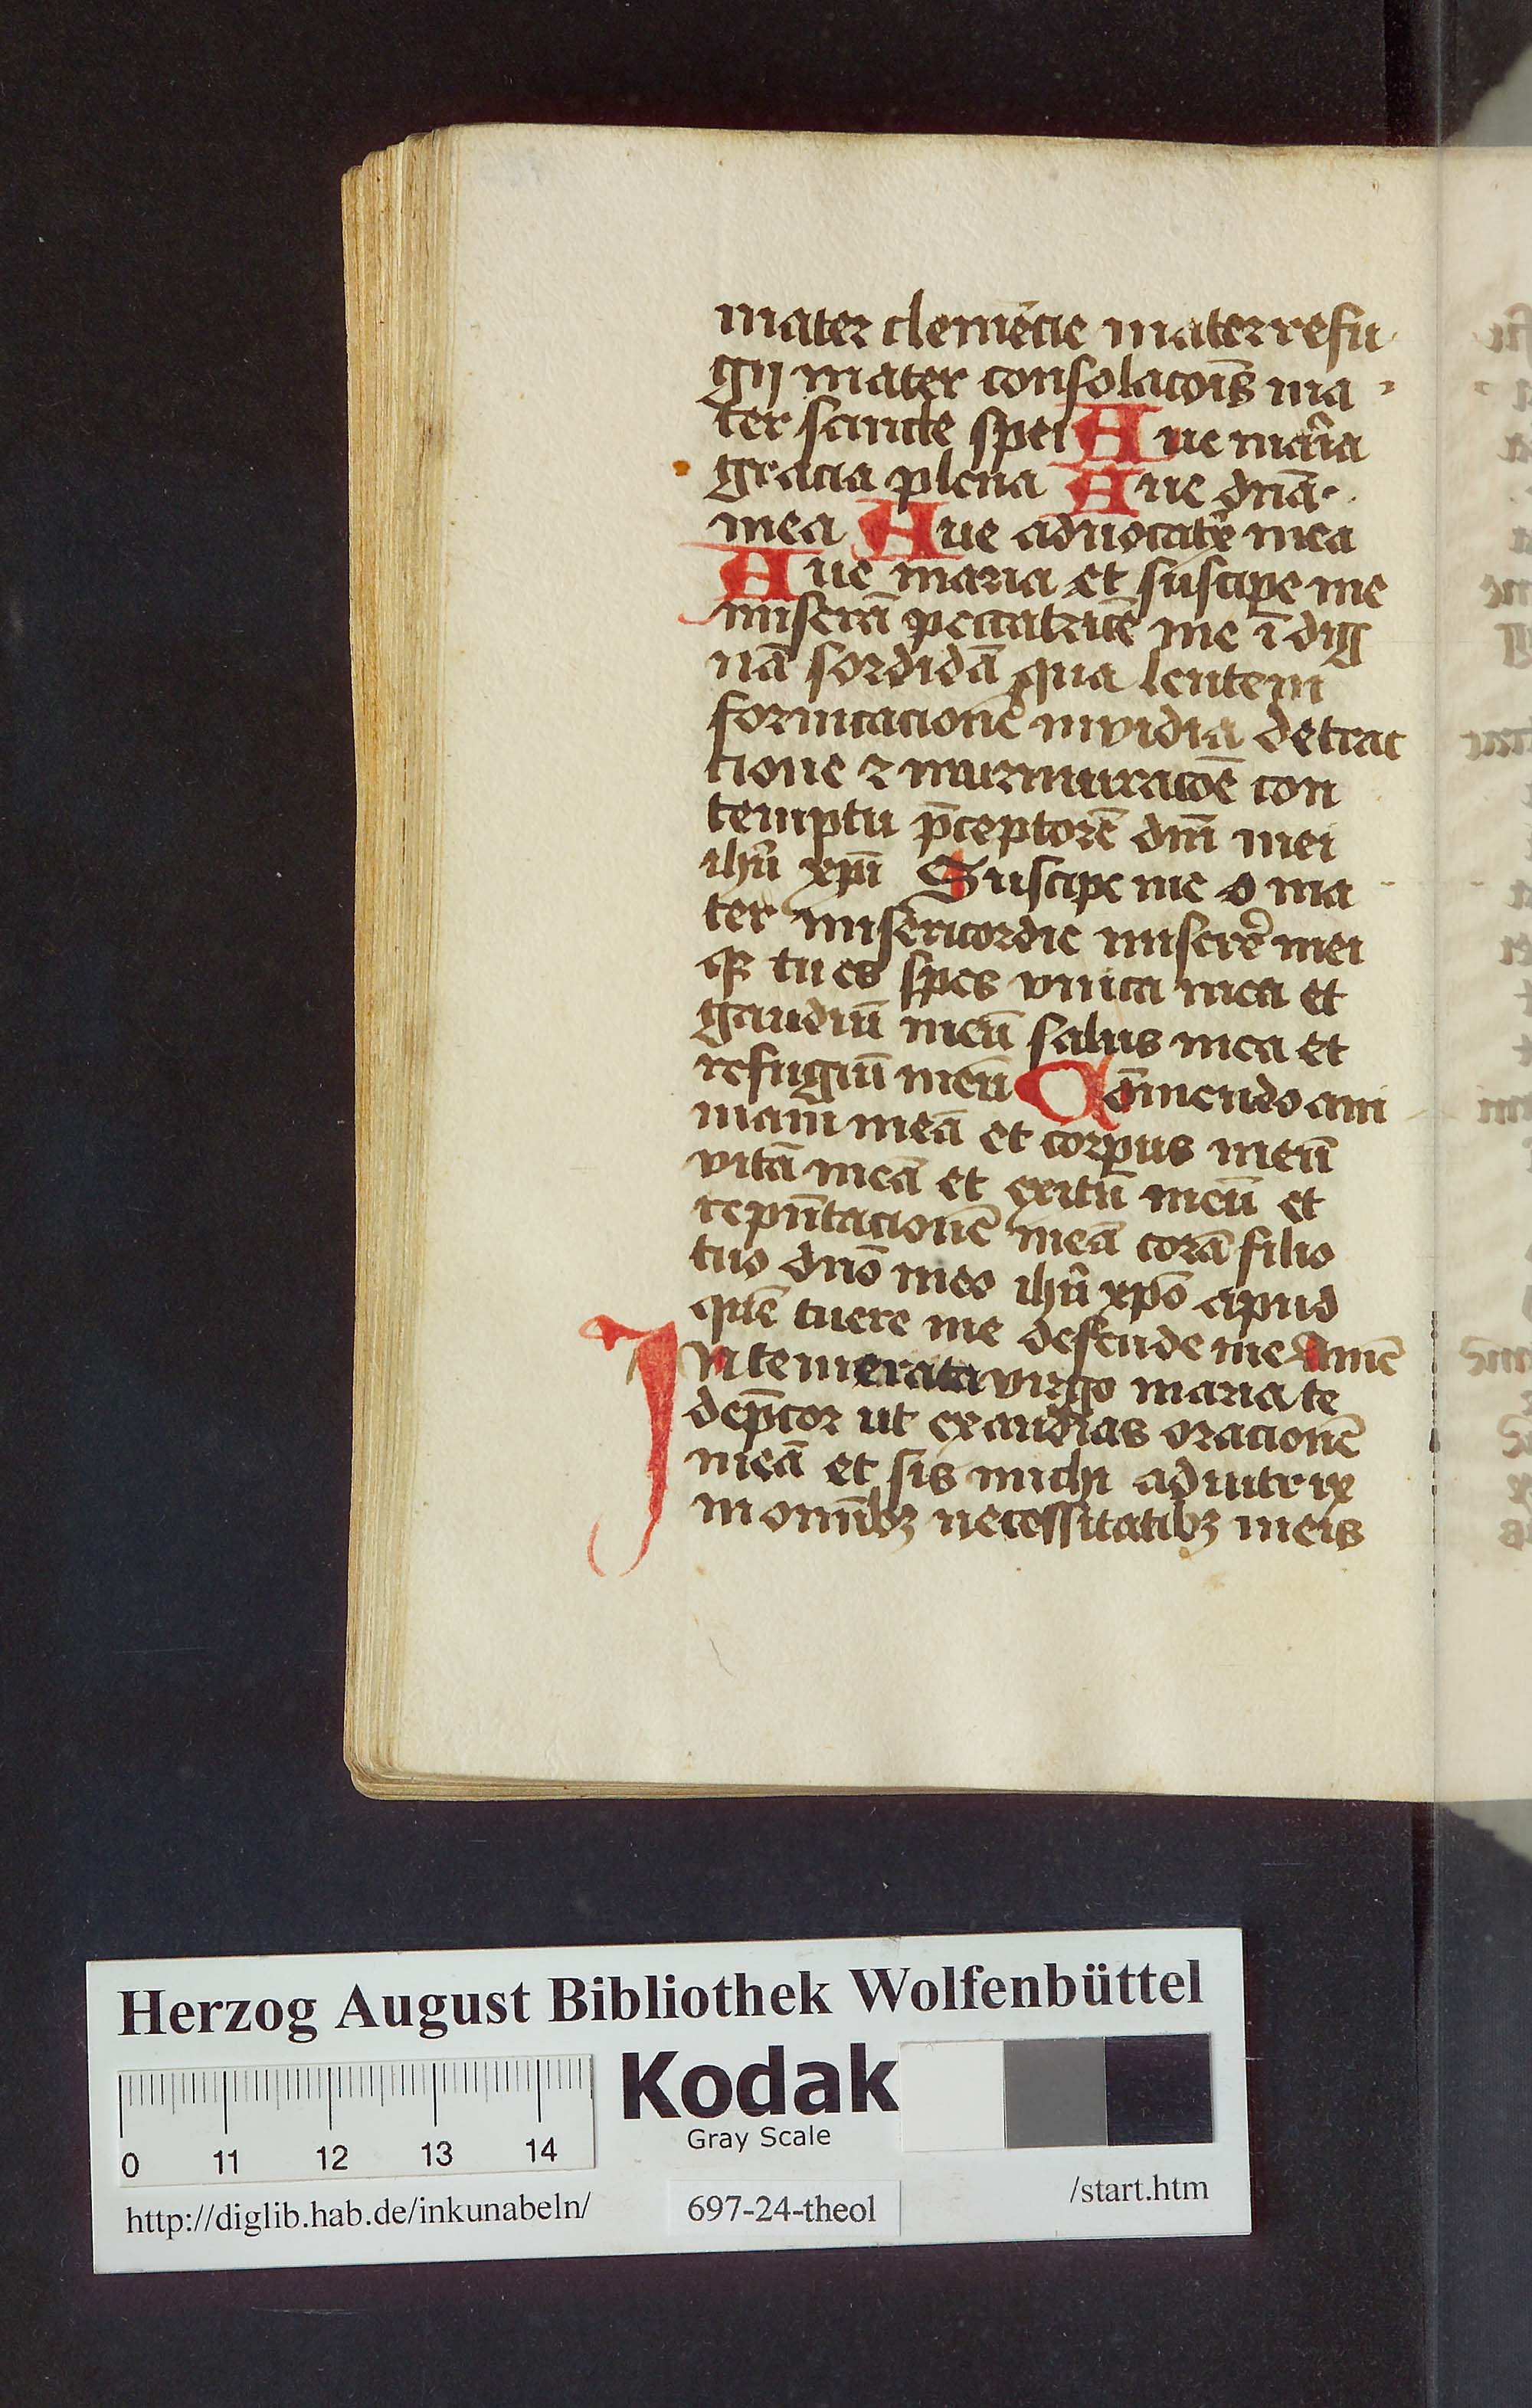 mater clemẽcie mater refu
gij mater consolacoĩs ma
ter sancte spei Aue maria
gracia plena Aue dnã
mea Aue aduocatrx mea
Aue maria et suscipe me
miserã peccatricẽ me ĩdig
nã sordidã qua lentem
fornicacionẽ inuidia detrac
tione ⁊ murmuracoẽ con
temptu p̄ceptorẽ dnĩ mei
ihũ xpĩ Suscipe me o ma
ter misericordie miserẽ mei
qꝫ tu es spes vnica mea et
gaudiũ meũ salus mea et
refugiũ meũ Cõmendo ani
mam meã et corpus meũ
vitã meã et exitũ meũ et
reputacionẽ meã corã filio
tuo dnõ meo ihũ xpõ apud
quẽ tuere me defende me Amẽ
Intemerata virgo maria te
dep̄cor ut exaudias oracionẽ
meã et sis michi adiutrix
in omĩbꝫ necessitatibꝫ meis
Herzog August Bibliothek Wolfenbüttel
Kodak
Gray Scale
0 11 12 13 14
http://diglib.hab.de/inkunabeln/ 697-24-theol /start.htm